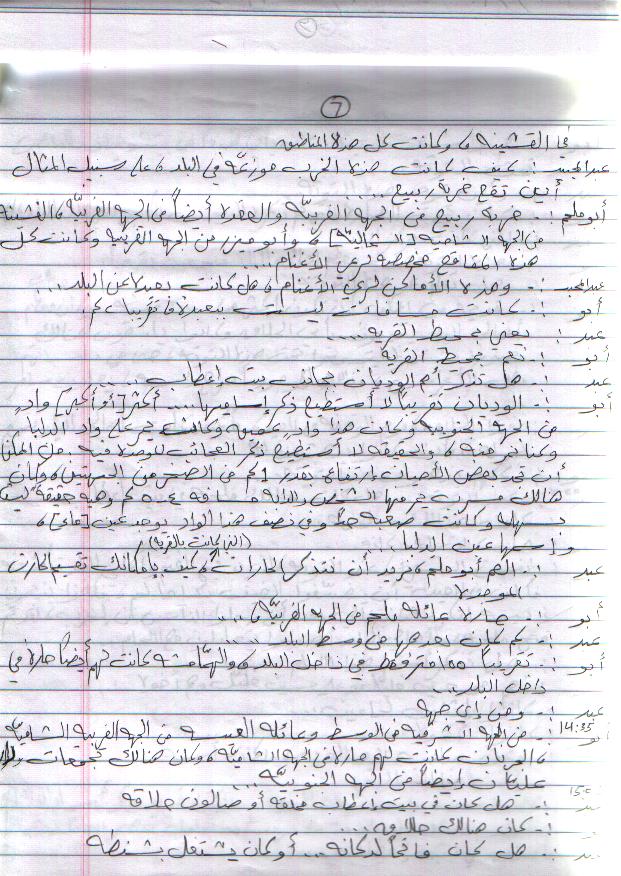 7
في القشينه، وكانت كل هذه المناطق
عبدالمجيد :- كيف كانت هذه الخرب موزعة في البلد، على سبيل المثال
أين تقع خربة ربيع ....
أبو ملحم :- خربة ربيع من الجهه الغربية و أيضاً من الجهه الغربية، القشينه
من الجهه الشامية [الشمالية]، و من الجهه الغربيه وكانت كل
هذه المناطق مخصصه لرعي الأغنام ....
عبدالمجيد :- وهذه الأماكن لرعي الأغنام، هل كانت بعيده عن البلد ...
أبو :- كانت مسافات ليست ببعيدة، تقريبا كم.
عبد :- يعني بمحيط القريه ....
أبو :- نعم بمحيط القرية
عبد :- هل تذكر أهم الوديان بجانب بيت إعطاب .....
أبو :- الوديان تقريباً لا أستطيع ذكر إسمها .... أكثر [أو أكبر] وادٍ
من الجهه الجنوبية وكان هذا وادٍ عميق وكانت على واد الدلبا
وكنا نمر منه، والحقيقه لا أستطيع ذكر العجائب الموجودة فيه. من الممكن
أن تجد بعض الأحيان بإرتفاع بقدر 1 كم من الصخر من الجهتين، وكان
هنالك سرب يمر منها الشخص والدابة مسافه كم وهي حقيقة ليست
سهله وكانت صعبه جداً وفي نصف هذا الواد يوجد عين [ماء]،
وإسمها عين الدلبا. (التي كانت بالقرية)
عبد :- العم أبو ملحم نريد أن نتذكر الحارات، كيف بإمكانك تقسيم الحارات
الموجودة
أبو :- حارة عائلة ملحم من الجهه الغربية، ...
عبد :- كم كان بعدها من وسط البلد ....
أبو :- تقريباً 100 متر فقط في داخل البلد، والهمامشه كانت لهم أيضاً حارة في
داخل البلد..
عبد :- ومن أي جهة
14:35
أبو :- من الجهه الشرقيه من الوسط وعائلة العيسه من الجهه الغربيه الشامية
، كانت لهم حارة من الجهه الشامية، وكان هنالك تجمعات
عليان أيضاً من الجهه الجنوبيه...
عبد :- هل كان في بيت إعطاب أو صالون حلاقه
:- كان هنالك حلاقه ...
عبد :- هل كان فاتحاً لدكانه ... أو كان يشتغل بشنطه